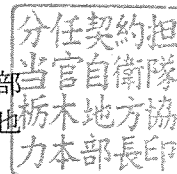 分任契約担
当官自衛隊
栃木地方協
力本部長印
部
也